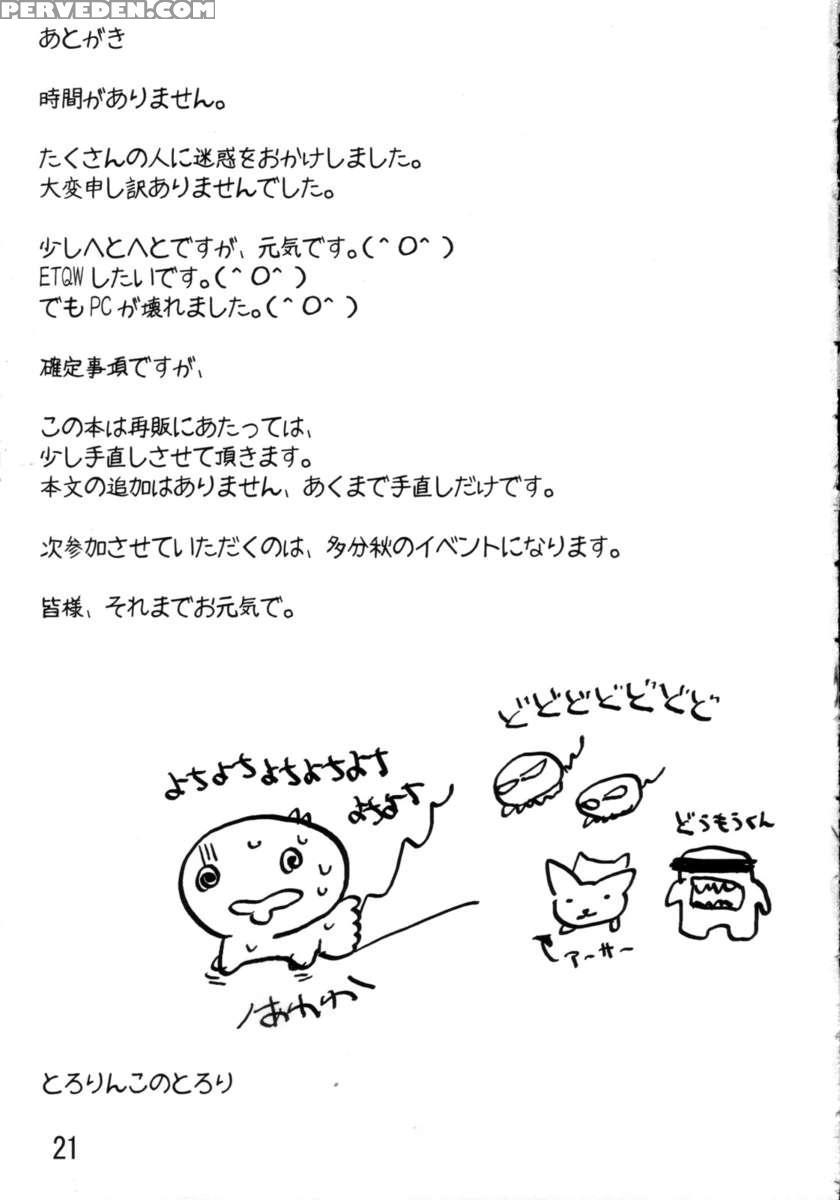 PERVEDEN.COM
あとがき
時間がありません。
たくさんの人に迷惑をおかけしました。
大変申し訳ありませんでした。
少しへとへとですが、元気です。(^O^)
ETQWしたいです。(^O^)
でもPCが壊れました。(^O^)
確定事項ですが、
この本は再販にあたっては、
少し手直しさせて頂きます。
本文の追加はありません、あくまで手直しだけです。
次参加させていただくのは、多分秋のイベントになります。
皆様、それまでお元気で。
どどどどどどど
よちよちよちよちよち
よちよち
どうもうくん
アーサー
とろりんこのとろり
21